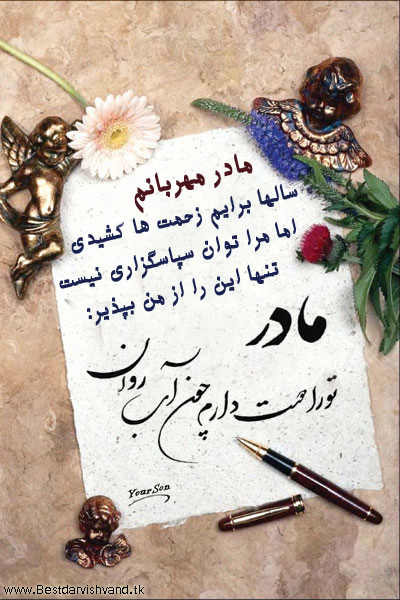 مادر مهربانم
سالها برایم زحمت ها کشیدی
اما مرا توان سپاسگزاری نیست
تنها این را از من بپذیر:
مادر
تو را دوست دارم چون آب روان
Your Son
www.Bestdarvishvand.tk